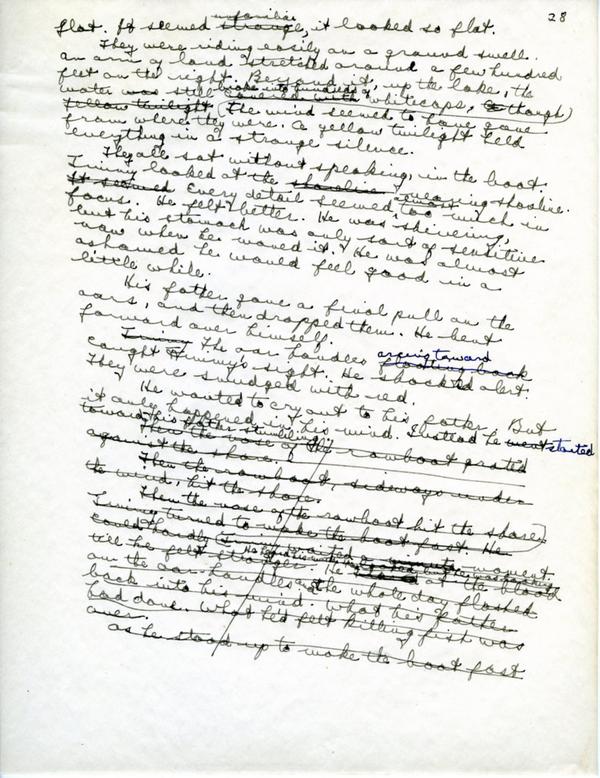 28
unfamiliar
flat. It seemed strange, it looked so flat.
They were riding easily on a ground swell.
An arm of land stretched around a few hundred
feet on the right. Beyond it, up the lake, the
water was still broke into hundreds of covered with whitecaps, (though)
yellow twilight The wind seemed to have gone
from where they were. A yellow twilight held
everything in a strange silence.
They all sat without speaking, in the boat.
Timmy looked at the shoreline nearing shoreline.
It seemed Every detail seemed too much in
focus. He felt better. He was shivering,
but his stomach was only sort of sensitive
now when he moved it. He was almost
ashamed he would feel good in a
little while.
His father gave a final pull on the
oars, and then dropped them. He bent
forward over himself.
Timmy The oar handles arcing toward floating back
caught Timmy's sight. He shocked alert.
They were smudged with red.
He wanted to cry out to his father. But
it only happened in his mind. Instead he went started
toward his father stumbling
Then the nose of the rowboat grated
against the shore.
Then the rowboat, sideways under
the wind, hit the shore.
Then the nose of the rowboat hit the shore.
Timmy turned to make the boat fast. He
could hardly wait a moment
till he felt stronger. He at the blood
on the oar handles and the whole day flashed
back into his mind. What his father
had done. What he'd felt killing fish was
over.
As he stood up to make the boat fast